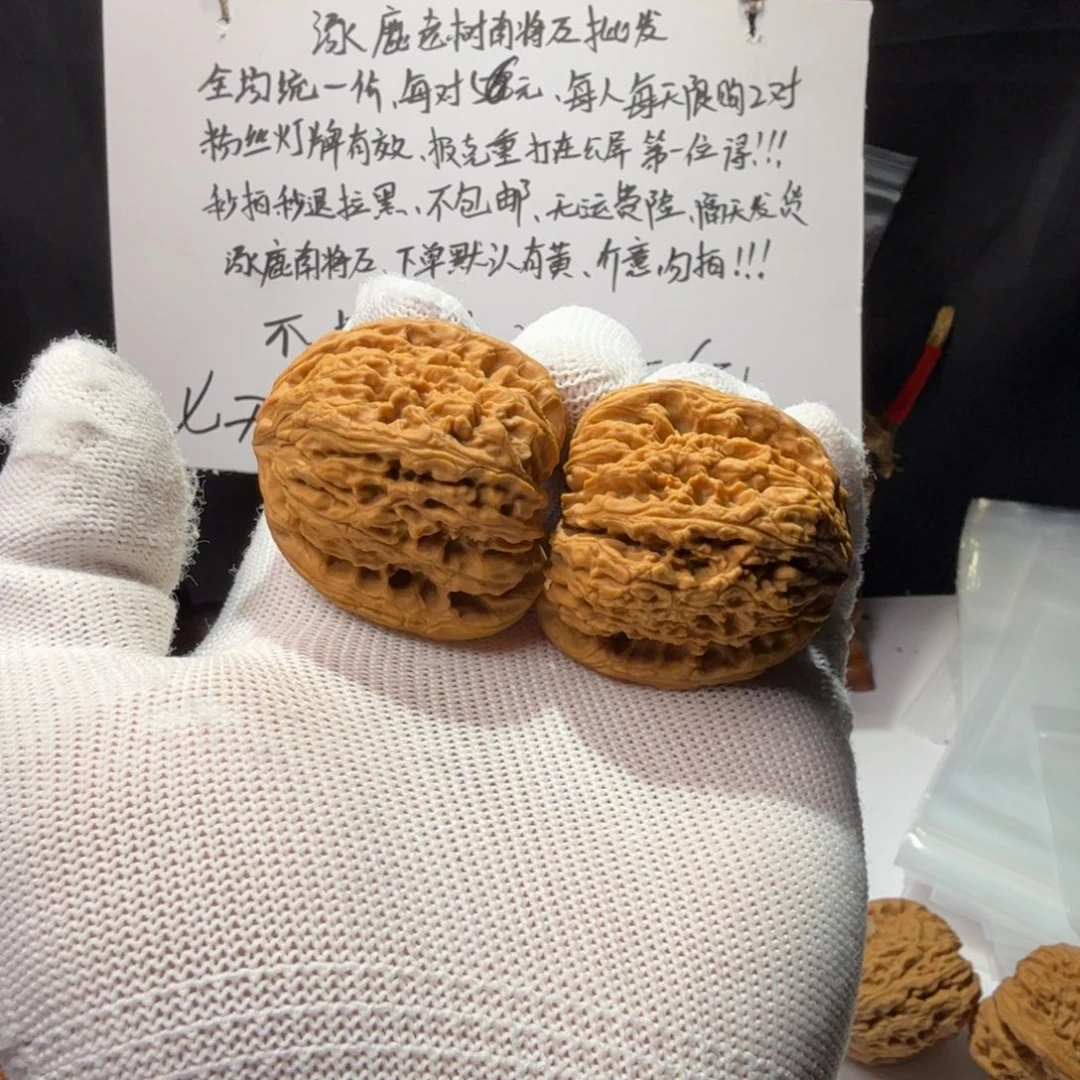 涿鹿老树南将石批发
全场统一价、每对元、每人每天限购2对
粉丝灯牌有效、报克重打在公屏第一位得!!!
秒拍秒退拉黑、不包邮、无运费险、隔天发货
涿鹿南将石、下单默认有黄、介意勿拍!!!
不
七天